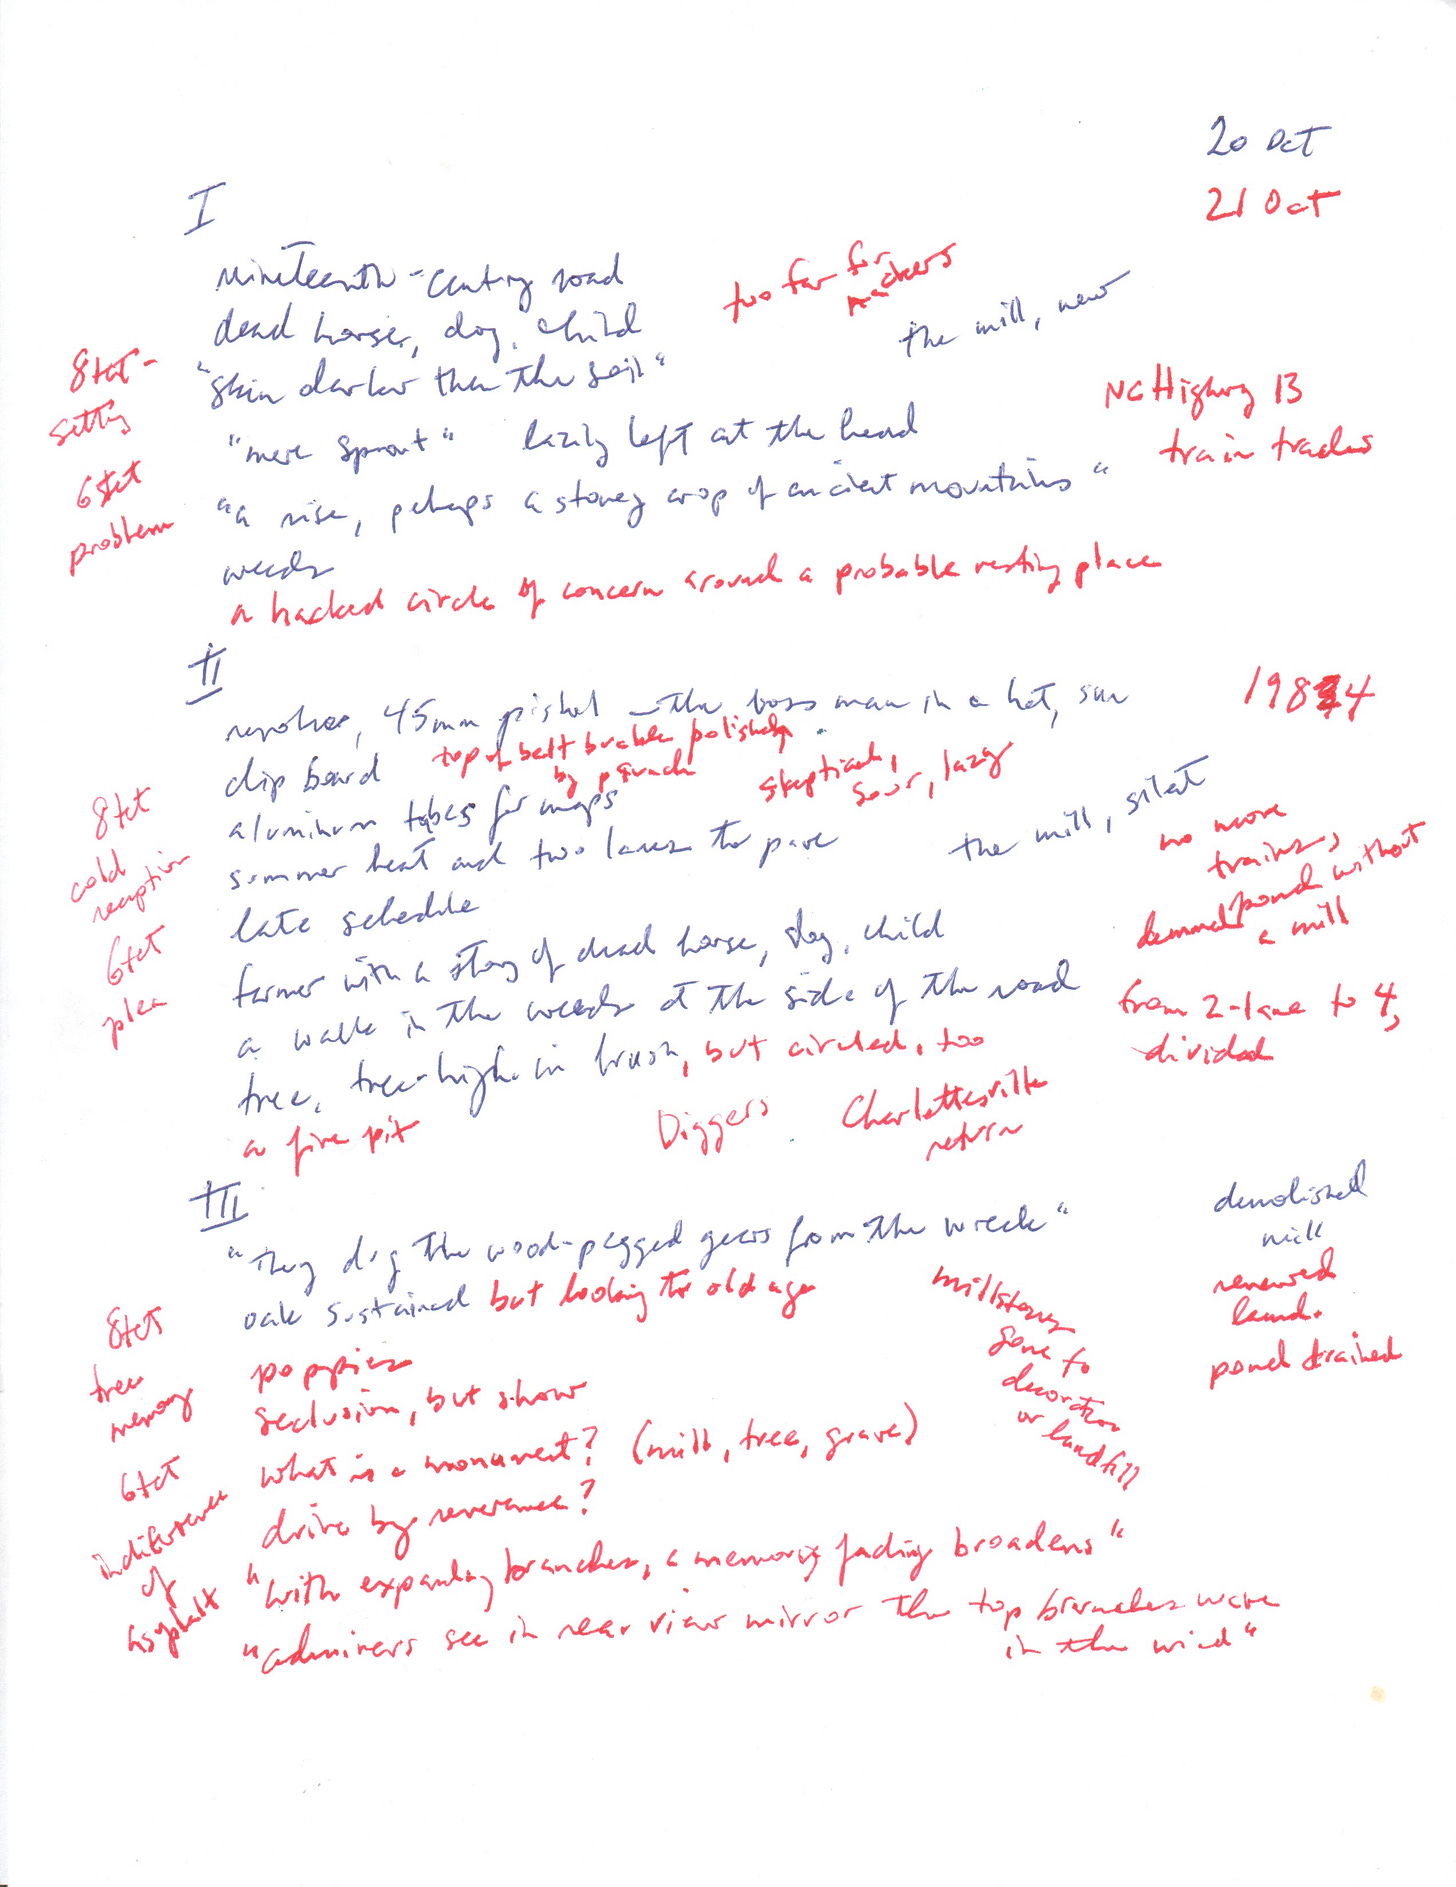 20 Oct
21 Oct
I
Nineteenth-Century road
too far for markers
dead horse, dog, child
the mill, new
"skin darker than the soil"
8tet-
setting
"mere sprout" lazily left at the head
NC Highway 13
train tracks
6tet
problem
"a rise, perhaps a stoney crop of ancient mountains"
weeds
a hacked circle of concern around a probable resting place
II
revolver, 45mm pistol - the boss man in a hat, sun
1984
clip board
top of belt buckle polished
by paunch
skeptical,
sour, lazy
aluminum tubes for maps
8tet
cold
reception
summer heat and two lanes to pave
the mill, silent
no more
trains,
dammed pond without
a mill
late schedule
6tet
plea
farmer with a story of dead horse, dog, child
a walk in the weeds at the side of the road
from 2-lane to 4,
divided
tree, tree-high in brush, but circled, too
a fire pit
Diggers
Charlottesville
return
III
"they dog the wood-pegged gears from the wreck"
demolished
mill
renewed
land.
pond drained
oak sustained but looking to old age
millstones
gone to
decoration
or landfill
8tet
tree
memory
poppies
seclusion, but show
what is a monument? (mill, tree, grave)
6tet
indifference
of
asphalt
drive by reverence?
"with expanding branches, a memory fading broadens"
"admirers see in rear view mirror the top branches wave
in the wind"